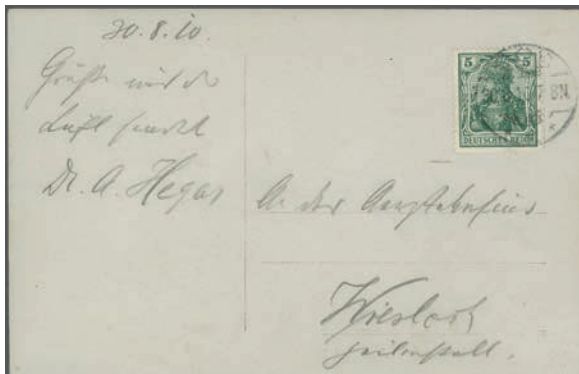 30.8.10.
Grüße mit der
Luft sendet
Dr. A. Hegar
5 5
DEUTSCHES REICH
7-8N.
A. der
Wiesloch
Heilanstalt.